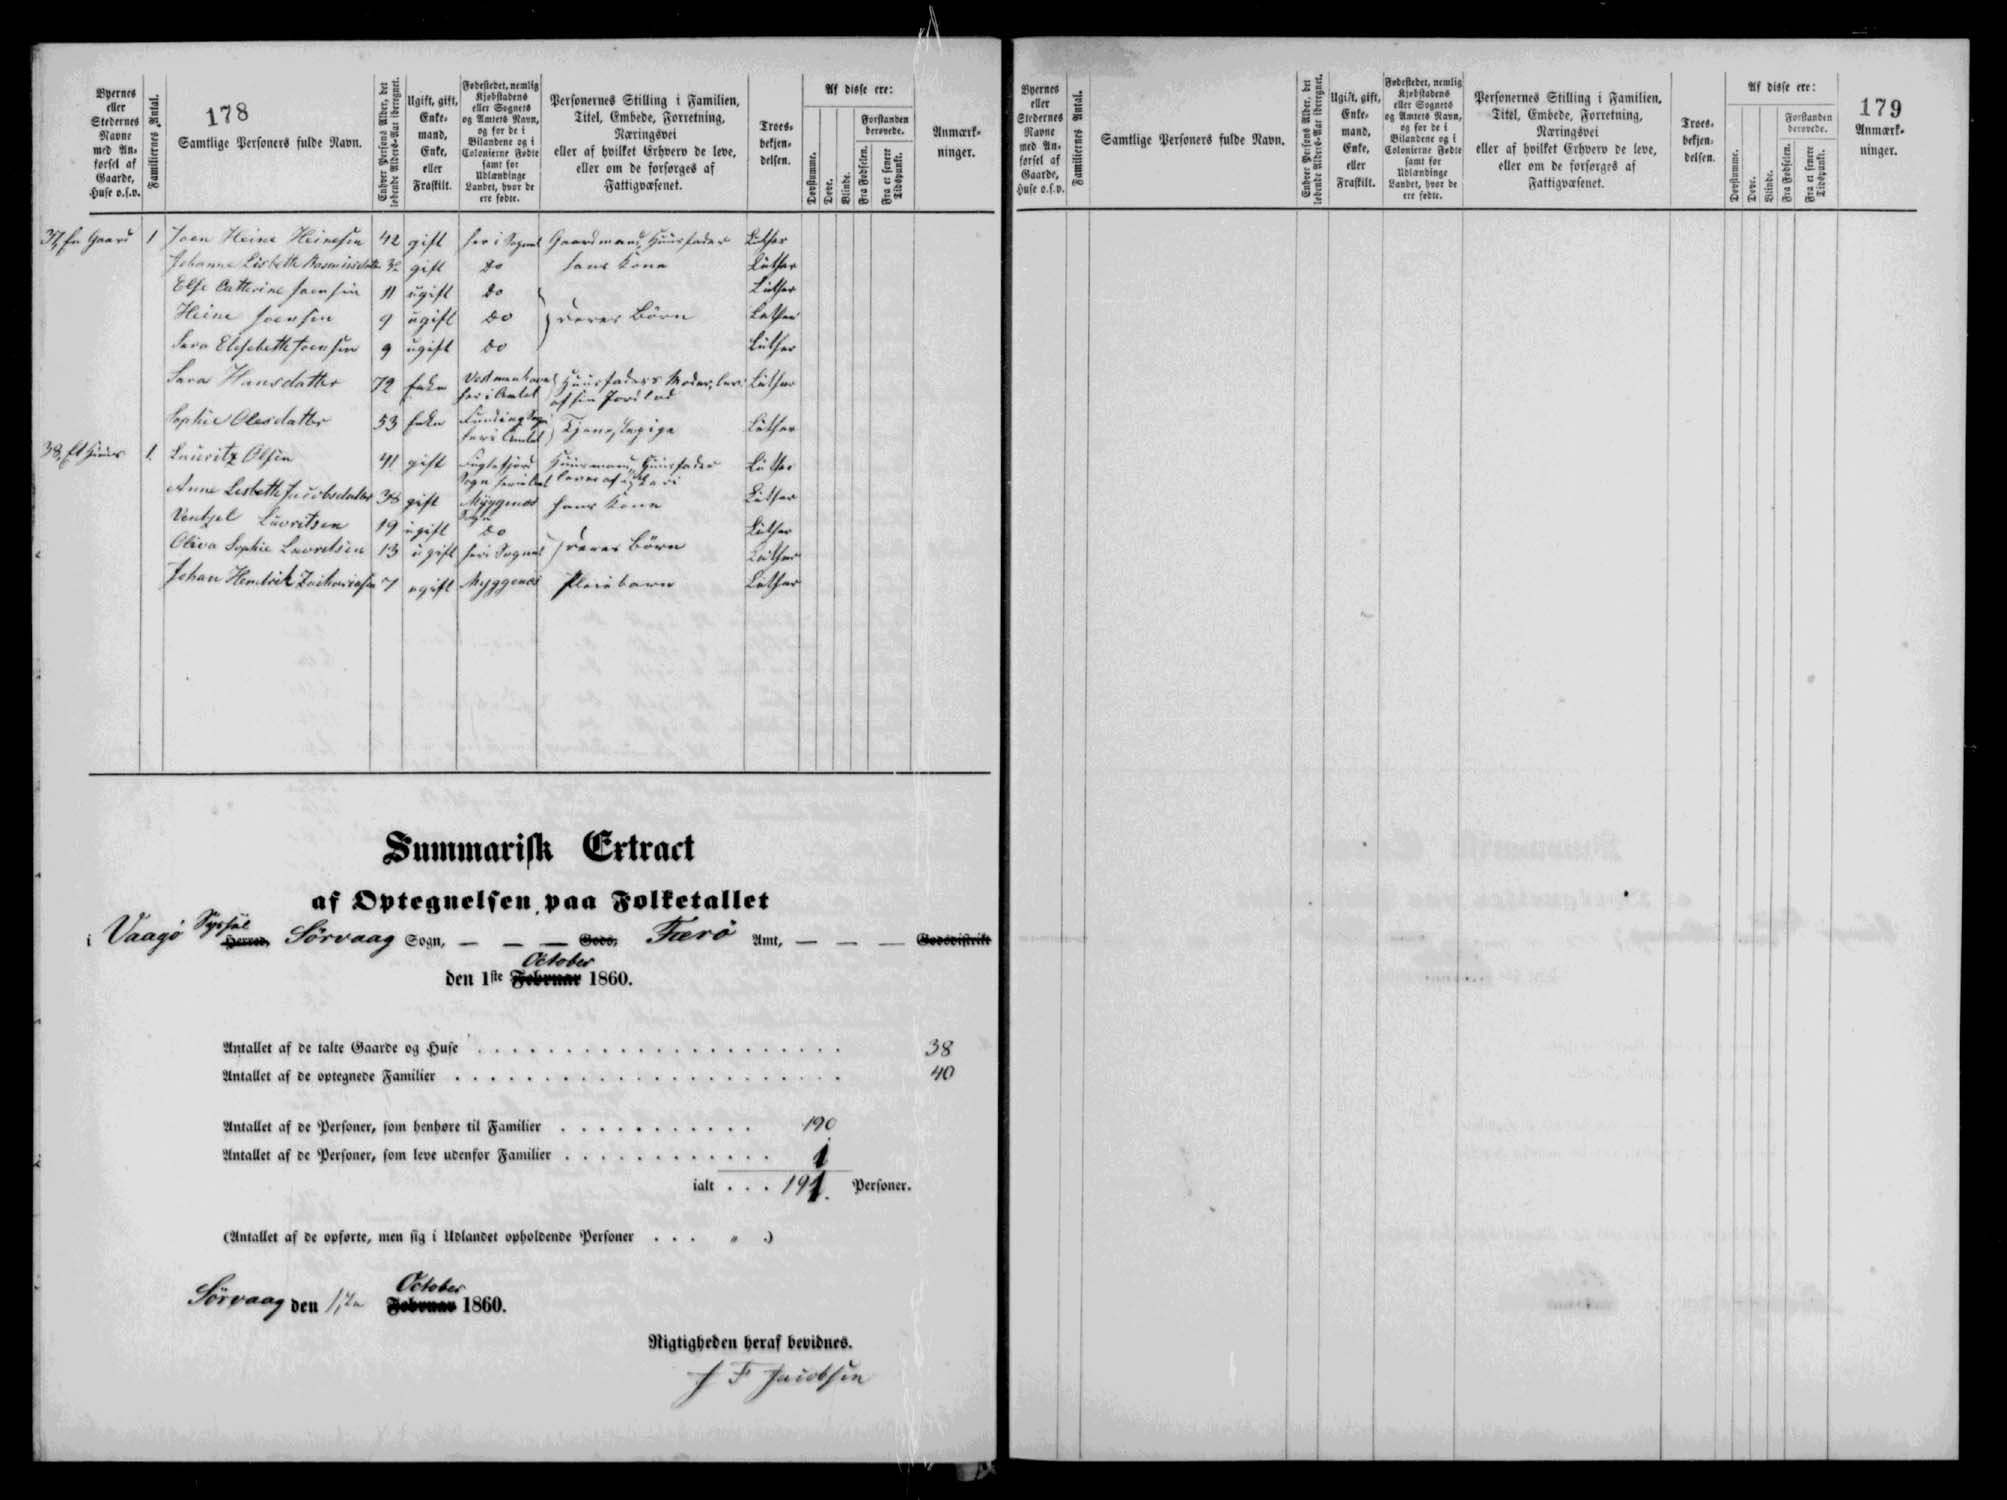 Byernes eller Stedernes Navne med Anførsel af Gaarde, Huse o.s.v.
Familiernes Antal.
178
Samtlige Personers fulde Navn.
Enhver Persons Alder, det løbende Alders-Aar iberegnet.
Ugift, gift, Enkemand, Enke, eller Fraskilt.
Fødestedet, nemlig Kjøbstadens eller Sognets og Amtets Navn, og for de i Bilandene og i Colonierne Fødte samt for Udlændinge Landet, hvor de ere fødte.
Personernes Stilling i Familien, Titel, Embede, Forretning, Næringsvei eller af hvilket Erhverv de leve, eller om de forsørges af Fattigvæsenet.
Troesbekjendelsen.
Af disse ere:
Døvstumme.
Døve.
Blinde.
Forstanden berøvede.
Fra Fødselen.
Fra et senere Tidspunkt.
Anmærkninger.
37, En Gaard 1 Joen Heine Heinesen 42 gift her i Sognet Gaardmand, Huusfader Luther
Johanne Lisbeth Rasmusdatter 32 gift do hans Kone Luther
Else Catherine Joensen 11 ugift do Luther
Heine Joensen 9 ugift do deres Börn Luther
Sara Elisebeth Joensen 9 ugift do Luther
Sara Hansdatter 72 Enke Vestmanhavn her i Amtet Huusfaders Moder, lever af sin Jordlod Luther
Sophie Olesdatter 53 Enke Funding Sogn her i Amtet Tjenestepige Luther
38, Et Huus 1. Lauritz Olsen 41 gift Fuglefjord Sogn her i Amtet Huusmand, Huusfader lever af Fiskeri Luther
Anne Lisbeth Jacobsdatter 38 gift Myggenæs Sogn hans Kone Luther
Ventzel Lavritsen 19 ugift do Luther
Oliva Sophie Lavritsen 13 ugift her i Sognet deres Börn Luther
Johan Hendrik Zachariasen 7 ugift Myggenæs Pleiebarn Luther
Summarisk Extract
af Optegnelsen paa Folketallet
i Vaagö Syssel Herred, Sörvaag Sogn, — — — Gods, Færö Amt, — — — Godsdistrikt
October
den 1ste Februar 1860.
Antallet af de talte Gaarde og Huse . . . 38
Antallet af de optegnede Familier . . . 40
Antallet af de Personer, som henhøre til Familier . . . 190
Antallet af de Personer, som leve udenfor Familier . . . 1
ialt . . . 191. Personer.
(Antallet af de opførte, men sig i Udlandet opholdende Personer . . . " .)
October
Sörvaag den Februar 1860.
Rigtigheden heraf bevidnes.
J F Jacobsen
Byernes eller Stedernes Navne med Anførsel af Gaarde, Huse o.s.v.
Familiernes Antal.
Samtlige Personers fulde Navn.
Enhver Persons Alder, det løbende Alders-Aar iberegnet.
Ugift, gift, Enkemand, Enke, eller Fraskilt.
Fødestedet, nemlig Kjøbstadens eller Sognets og Amtets Navn, og for de i Bilandene og i Colonierne Fødte samt for Udlændinge Landet, hvor de ere fødte.
Personernes Stilling i Familien, Titel, Embede, Forretning, Næringsvei eller af hvilket Erhverv de leve, eller om de forsørges af Fattigvæsenet.
Troesbekjendelsen.
Af disse ere:
Døvstumme.
Døve.
Blinde.
Forstanden berøvede.
Fra Fødselen.
Fra et senere Tidspunkt.
179
Anmærkninger.